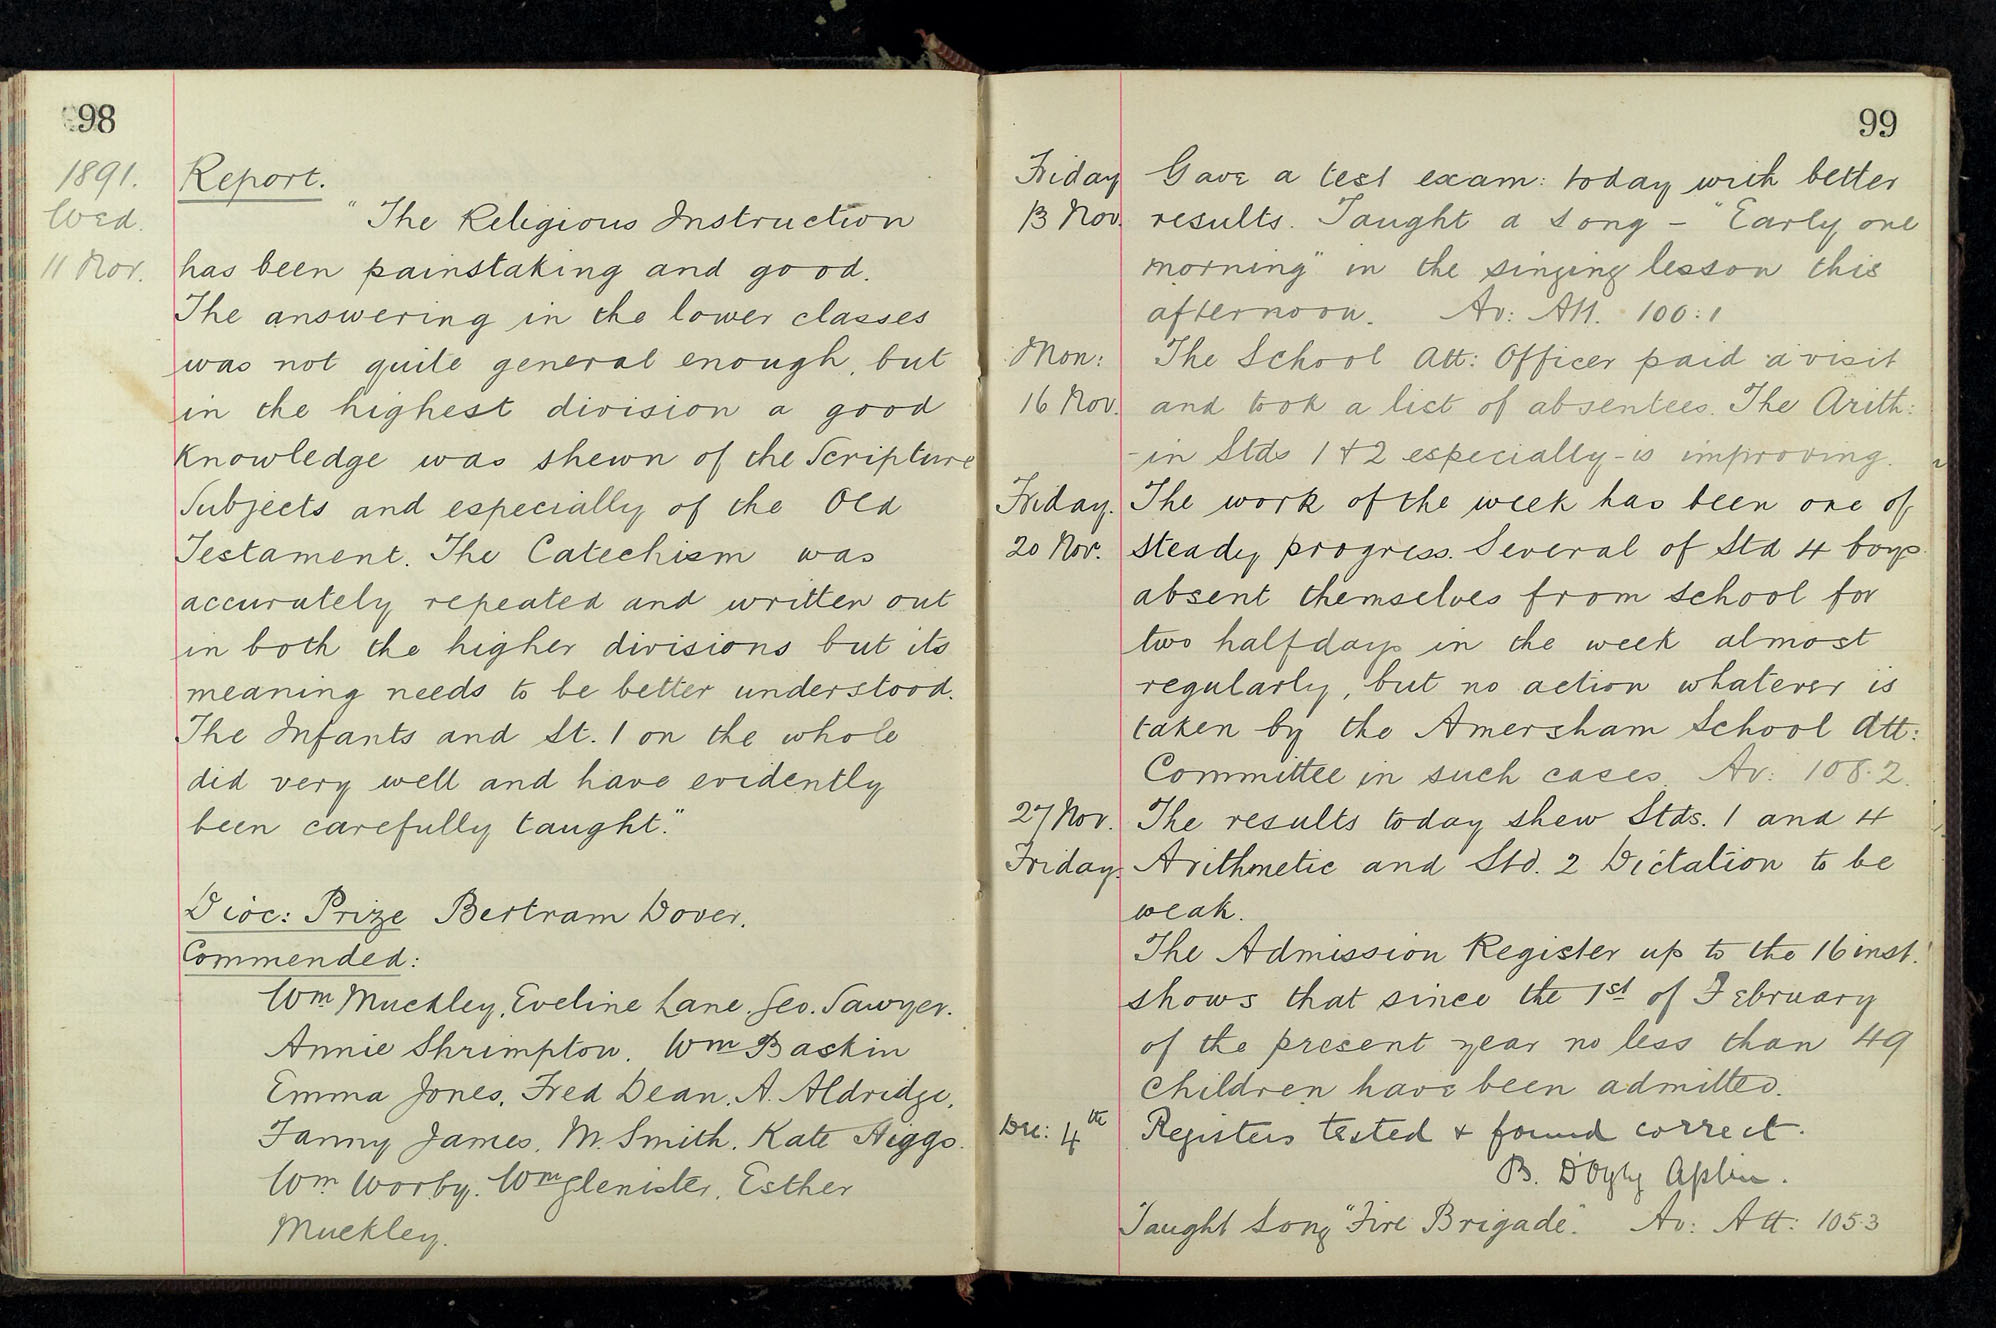 98
1891.
Wed.
11 Nov.
Report.
"The Religious Instruction
has been painstaking and good.
The answering in the lower classes
was not quite general enough, but
in the highest division a good
knowledge was shewn of the Scripture
Subjects and especially of the Old
Testament. The Catechism was
accurately repeated and written out
in both the higher divisions but its
meaning needs to be better understood.
The Infants and St. 1 on the whole
did very well and have evidently
been carefully taught."
Dioc: Prize Bertram Dover.
Commended:
Wm Muckley, Eveline Lane. Geo. Sawyer.
Annie Shrimpton. Wm Baskin
Emma Jones. Fred Dean. A. Aldridge.
Fanny James. M. Smith. Kate Higgs.
Wm Worby. Wm Glenister. Esther
Muckley.
99
Friday Gave a test exam: today with better
13 Nov. results. Taught a song - "Early one
morning" in the singing lesson this
afternoon. Av: Att. 100:1
Mon: The School Att: Officer paid a visit
16 Nov. and took a list of absentees. The Arith:
- in Stds 1 & 2 especially - is improving.
Friday. The work of the week has been one of
20 Nov. steady progress. Several of Std 4 boys
absent themselves from school for
two halfdays in the week almost
regularly, but no action whatever is
taken by the Amersham School Att:
Committee in such cases. Av: 108.2.
27 Nov. The results today shew Stds. 1 and 4
Friday. Arithmetic and Std. 2 Dictation to be
weak.
The Admission Register up to the 16 inst.
shows that since the 1st of February
of the present year no less than 49
children have been admitted.
Dec: 4th Registers tested & found correct.
B. D'Oyly Aplin.
Taught Song "Fire Brigade". Av: Att: 105.3